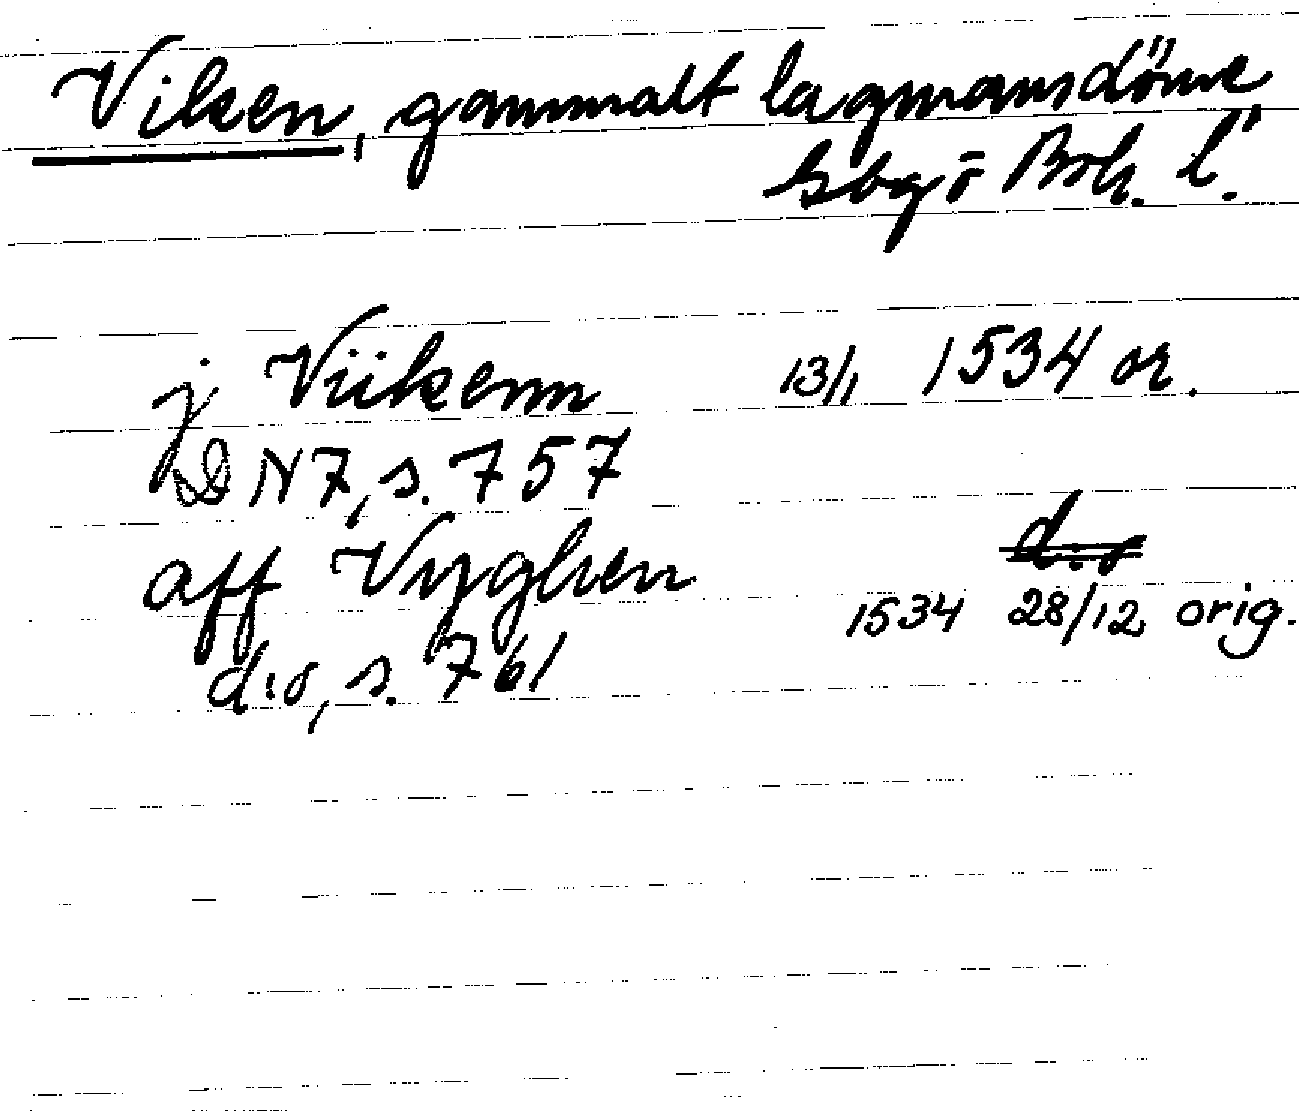 Viken, gammalt lagmansdöme
Gbgs ö Boh. l.
j Viikenn 13/1 1534 or.
DN 7, s. 757
aff Vyghen d:o
1534 28/12 orig.
d:o, s. 761